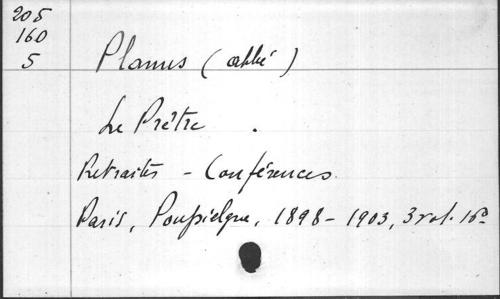 205
160
5
Planus (abbé)
Le Prêtre.
Retraites - Conférences
Paris, Poussielgue, 1898-1903, 3 vol. 16°